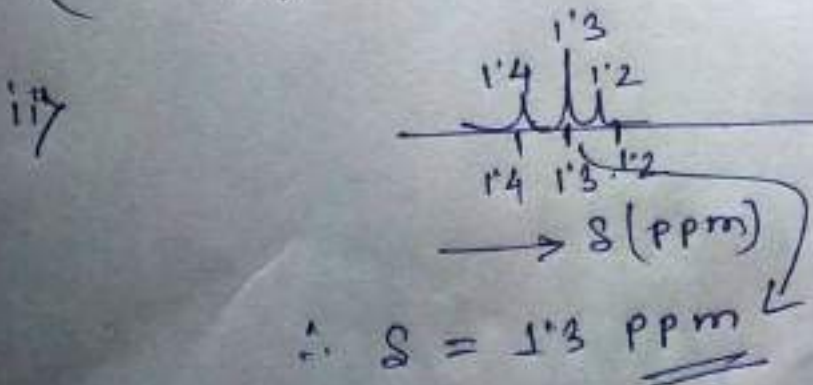 ii>
1.3
1.4 1.2
1.4 1.3 1.2
→ δ (ppm)
∴ δ = 1.3 ppm